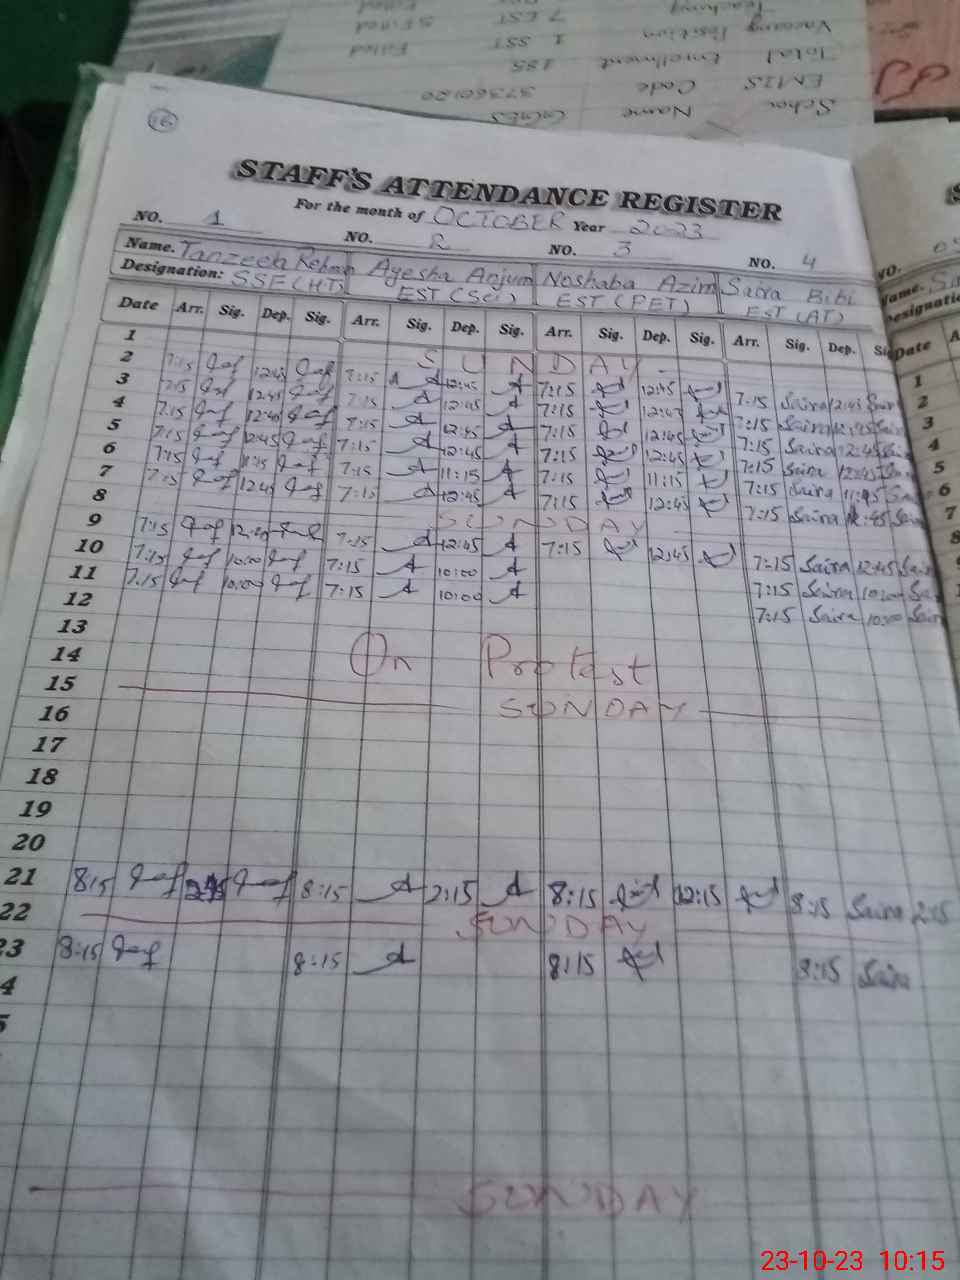 Teaching Filled
Vaccany Position 7 EST 5 Filled
Total Enrollment 185 1 SST Filled
EMIS Code 37360120
Name GGHS
16
STAFF'S ATTENDANCE REGISTER
For the month of OCTOBER Year 2023
NO. 1 NO. 2 NO. 3 NO. 4
Name. Tanzeela Rehman Ayesha Anjum Noshaba Azim Saira Bibi
Designation: SSE (HT) EST (Sci) EST (PET) EST (AT)
Date Arr. Sig. Dep. Sig. Arr. Sig. Dep. Sig. Arr. Sig. Dep. Sig. Arr. Sig. Dep. Sig
1 SUNDAY
2 7:15 12:45 7:15 12:45 7:15 12:45 7:15 Saira 12:45 Saira
3 7:15 12:45 7:15 12:45 7:15 12:45 7:15 Saira 12:45 Saira
4 7:15 12:45 7:15 12:45 7:15 12:45 7:15 Saira 12:45 Saira
5 7:15 12:45 7:15 12:45 7:15 12:45 7:15 Saira 12:45 Saira
6 7:15 11:15 7:15 11:15 7:15 11:15 7:15 Saira 11:15 Saira
7 7:15 12:45 7:15 12:45 7:15 12:45 7:15 Saira 12:45 Saira
8 SUNDAY
9 7:15 12:45 7:15 12:45 7:15 12:45 7:15 Saira 12:45 Sair
10 7:15 10:00 7:15 10:00 7:15 Saira 10:00 Sai
11 7:15 10:00 7:15 10:00 7:15 Saira 10:00 Sair
12
13
14 On Protest
15 SUNDAY
16
17
18
19
20
21 8:15 2:15 8:15 2:15 8:15 12:15 8:15 Saira 2:15
22 SUNDAY
23 8:15 8:15 8:15 8:15 Saira
4
5
SUNDAY
NO.
Name.
Designatio
Date
1
2
3
4
5
6
7
8
23-10-23 10:15